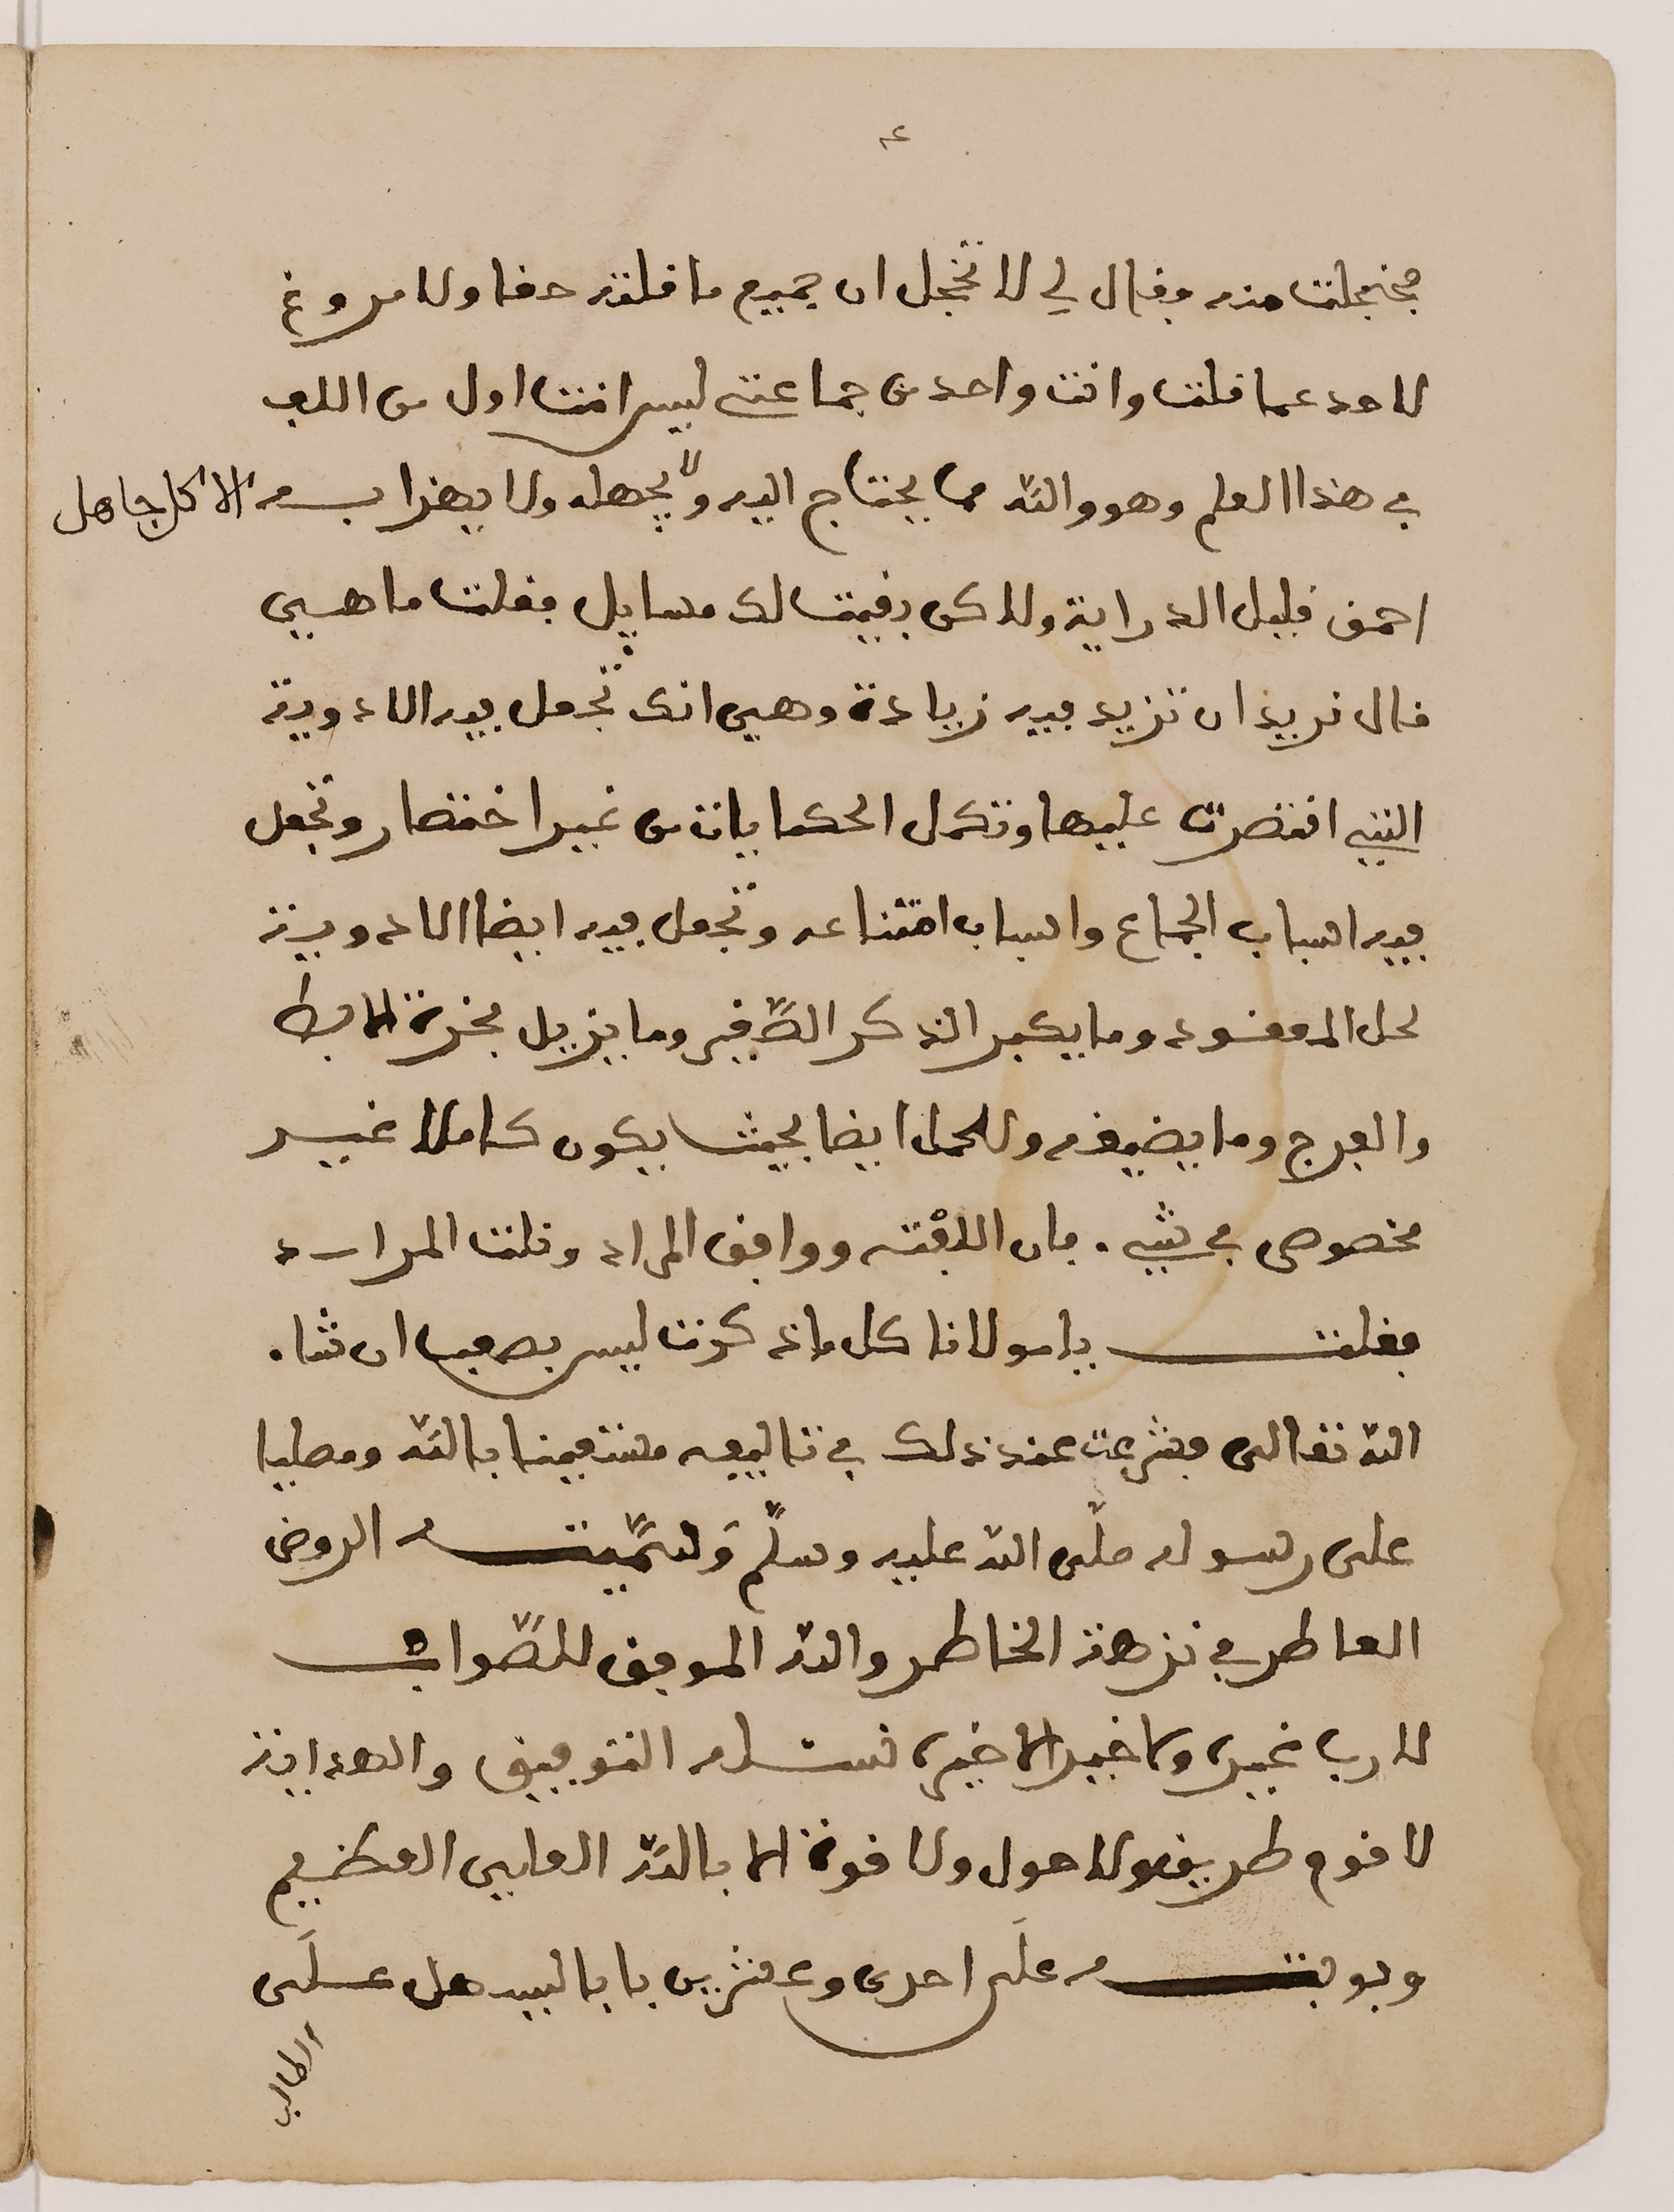 ٤
فخجلت منه فقال لي لا تخجل ان جميع ما قلته حقا ولا مروغ
لاحد عما قلت وانت واحد من جماعة ليس انت اول من الف
في هذا العلم وهو والله مما يحتاج اليه ولا يجهله ولا يهزا به الا كل جاهل
احمق قليل الدراية ولاكن بقيت لك مسايل فقلت ما هي
قال نريد ان تزيد فيه زيادة وهي انك تجعل فيه الادوية
التي اقتصرت عليها وتكمل الحكايات من غير اختصار وتجعل
فيه اسباب الجماع واسباب امتناعه وتجعل فيه ايضا الادوية
لحل المعقود وما يكبر الذكر الصّغير وما يزيل بخرة الابط
والفرج وما يضيقه وللحمل ايضا بحيث يكون كاملا غير
مخصوص في شي. فان الفته ووافق المراد ونلت المراد
فقلت يا مولانا كل ما ذكرت ليس بصعب ان شاء
الله تعالى فشرعت عند ذلك في تاليفه مستعينا بالله ومصليا
على رسوله صلّى الله عليه وسلّم وَسمَّيته الروض
العاطر في نزهة الخاطر والله الموفق للصَّواب
لا رب غيره ولا خير الا خيره نسئله التوفيق والهداية
لاقوم طريق ولا حول ولا قوة الا بالله العلي العظيم
وبوبته علَى احدى وعشرين بابا ليسهل علَى
الطالب